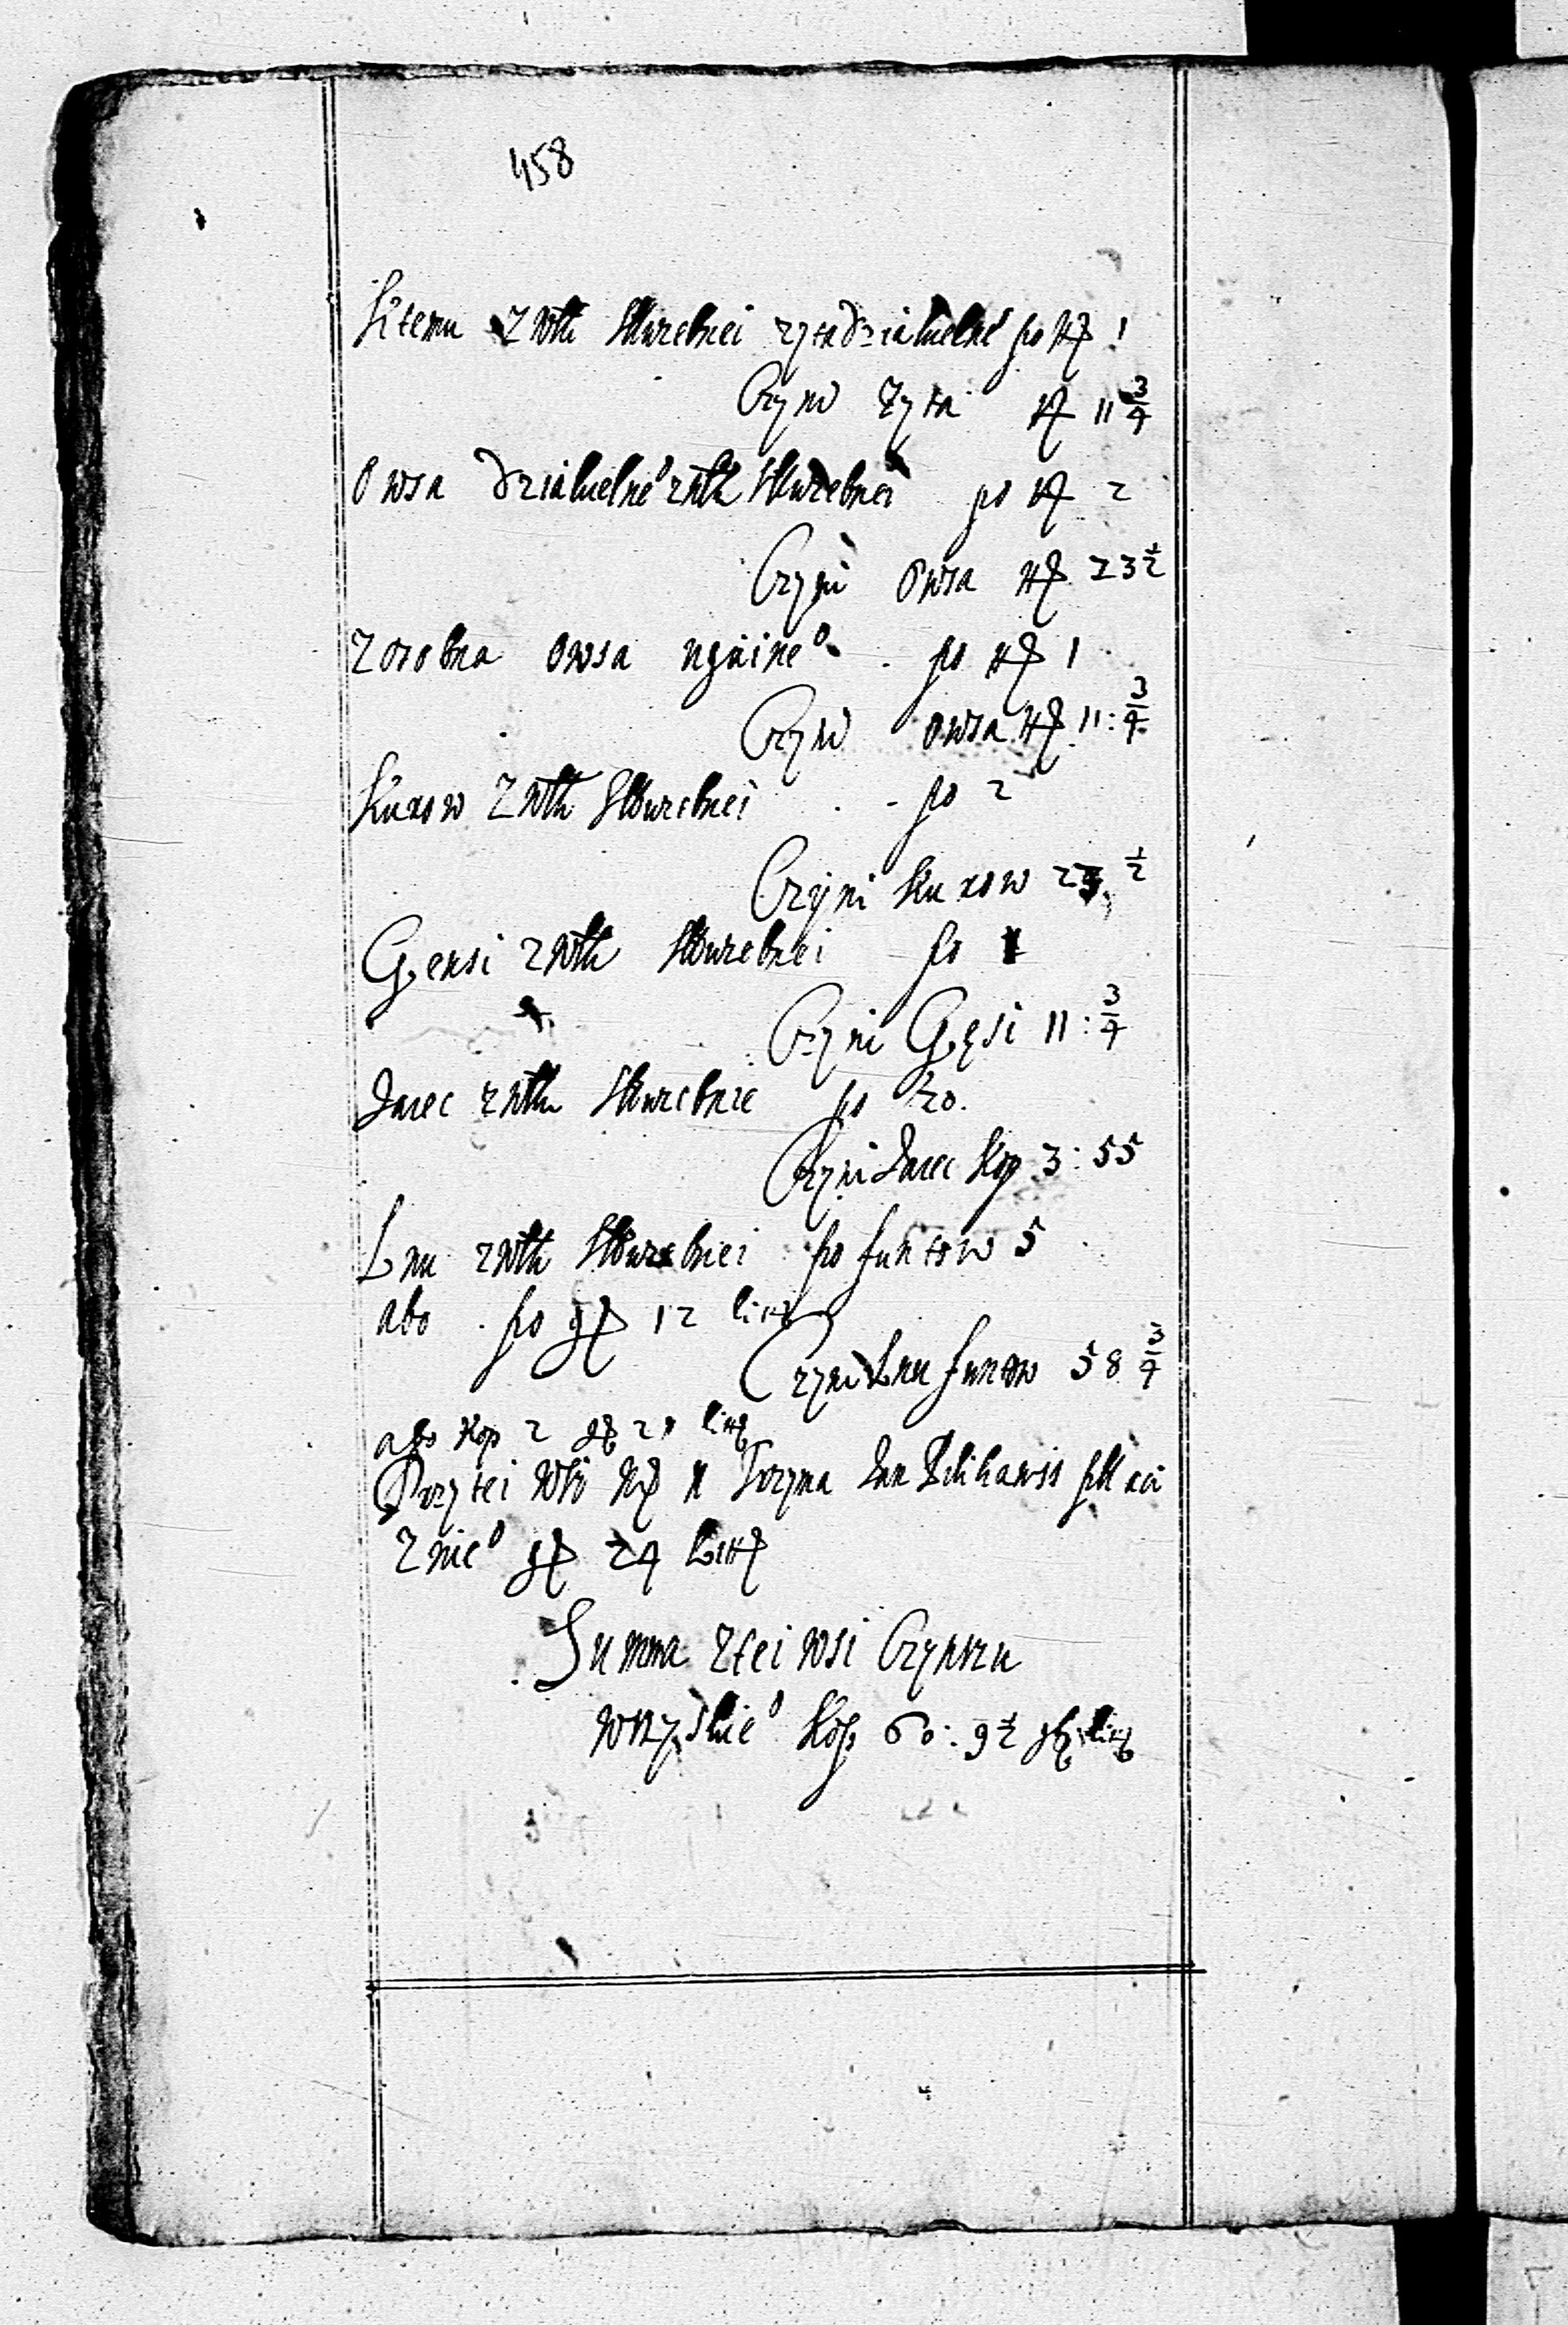 458
K temu z włk służebnei żyta działnelne° po 1
Czyni żyta 11 3/4
Owsa działnelne° z włk służebnei po 2
Czyni Owsa 23 1/2
Zosobna Owsa po 1
Czyni owsa 11: 3/4
Kurow z włk służebnei po 2
Czyni Kurow 23 1/2
Gęnsi z włk służebnei po 1
Czyni Gęsi 11: 3/4
Jaiec z włk służebnei po 20.
Czyni Jaiec Kop 3: 55
Lnu z włk służebnei po funtow 5
abo po gr 12 lit
Czyni Lnu funtow 58 3/4
abo Kop 2 gr 21 lit
Przytei wsi Jan
Z nie° gr 24 Lit
Summa ztei wsi Czynszu
wszyskie° Kop 60: 9 1/2 gr lit